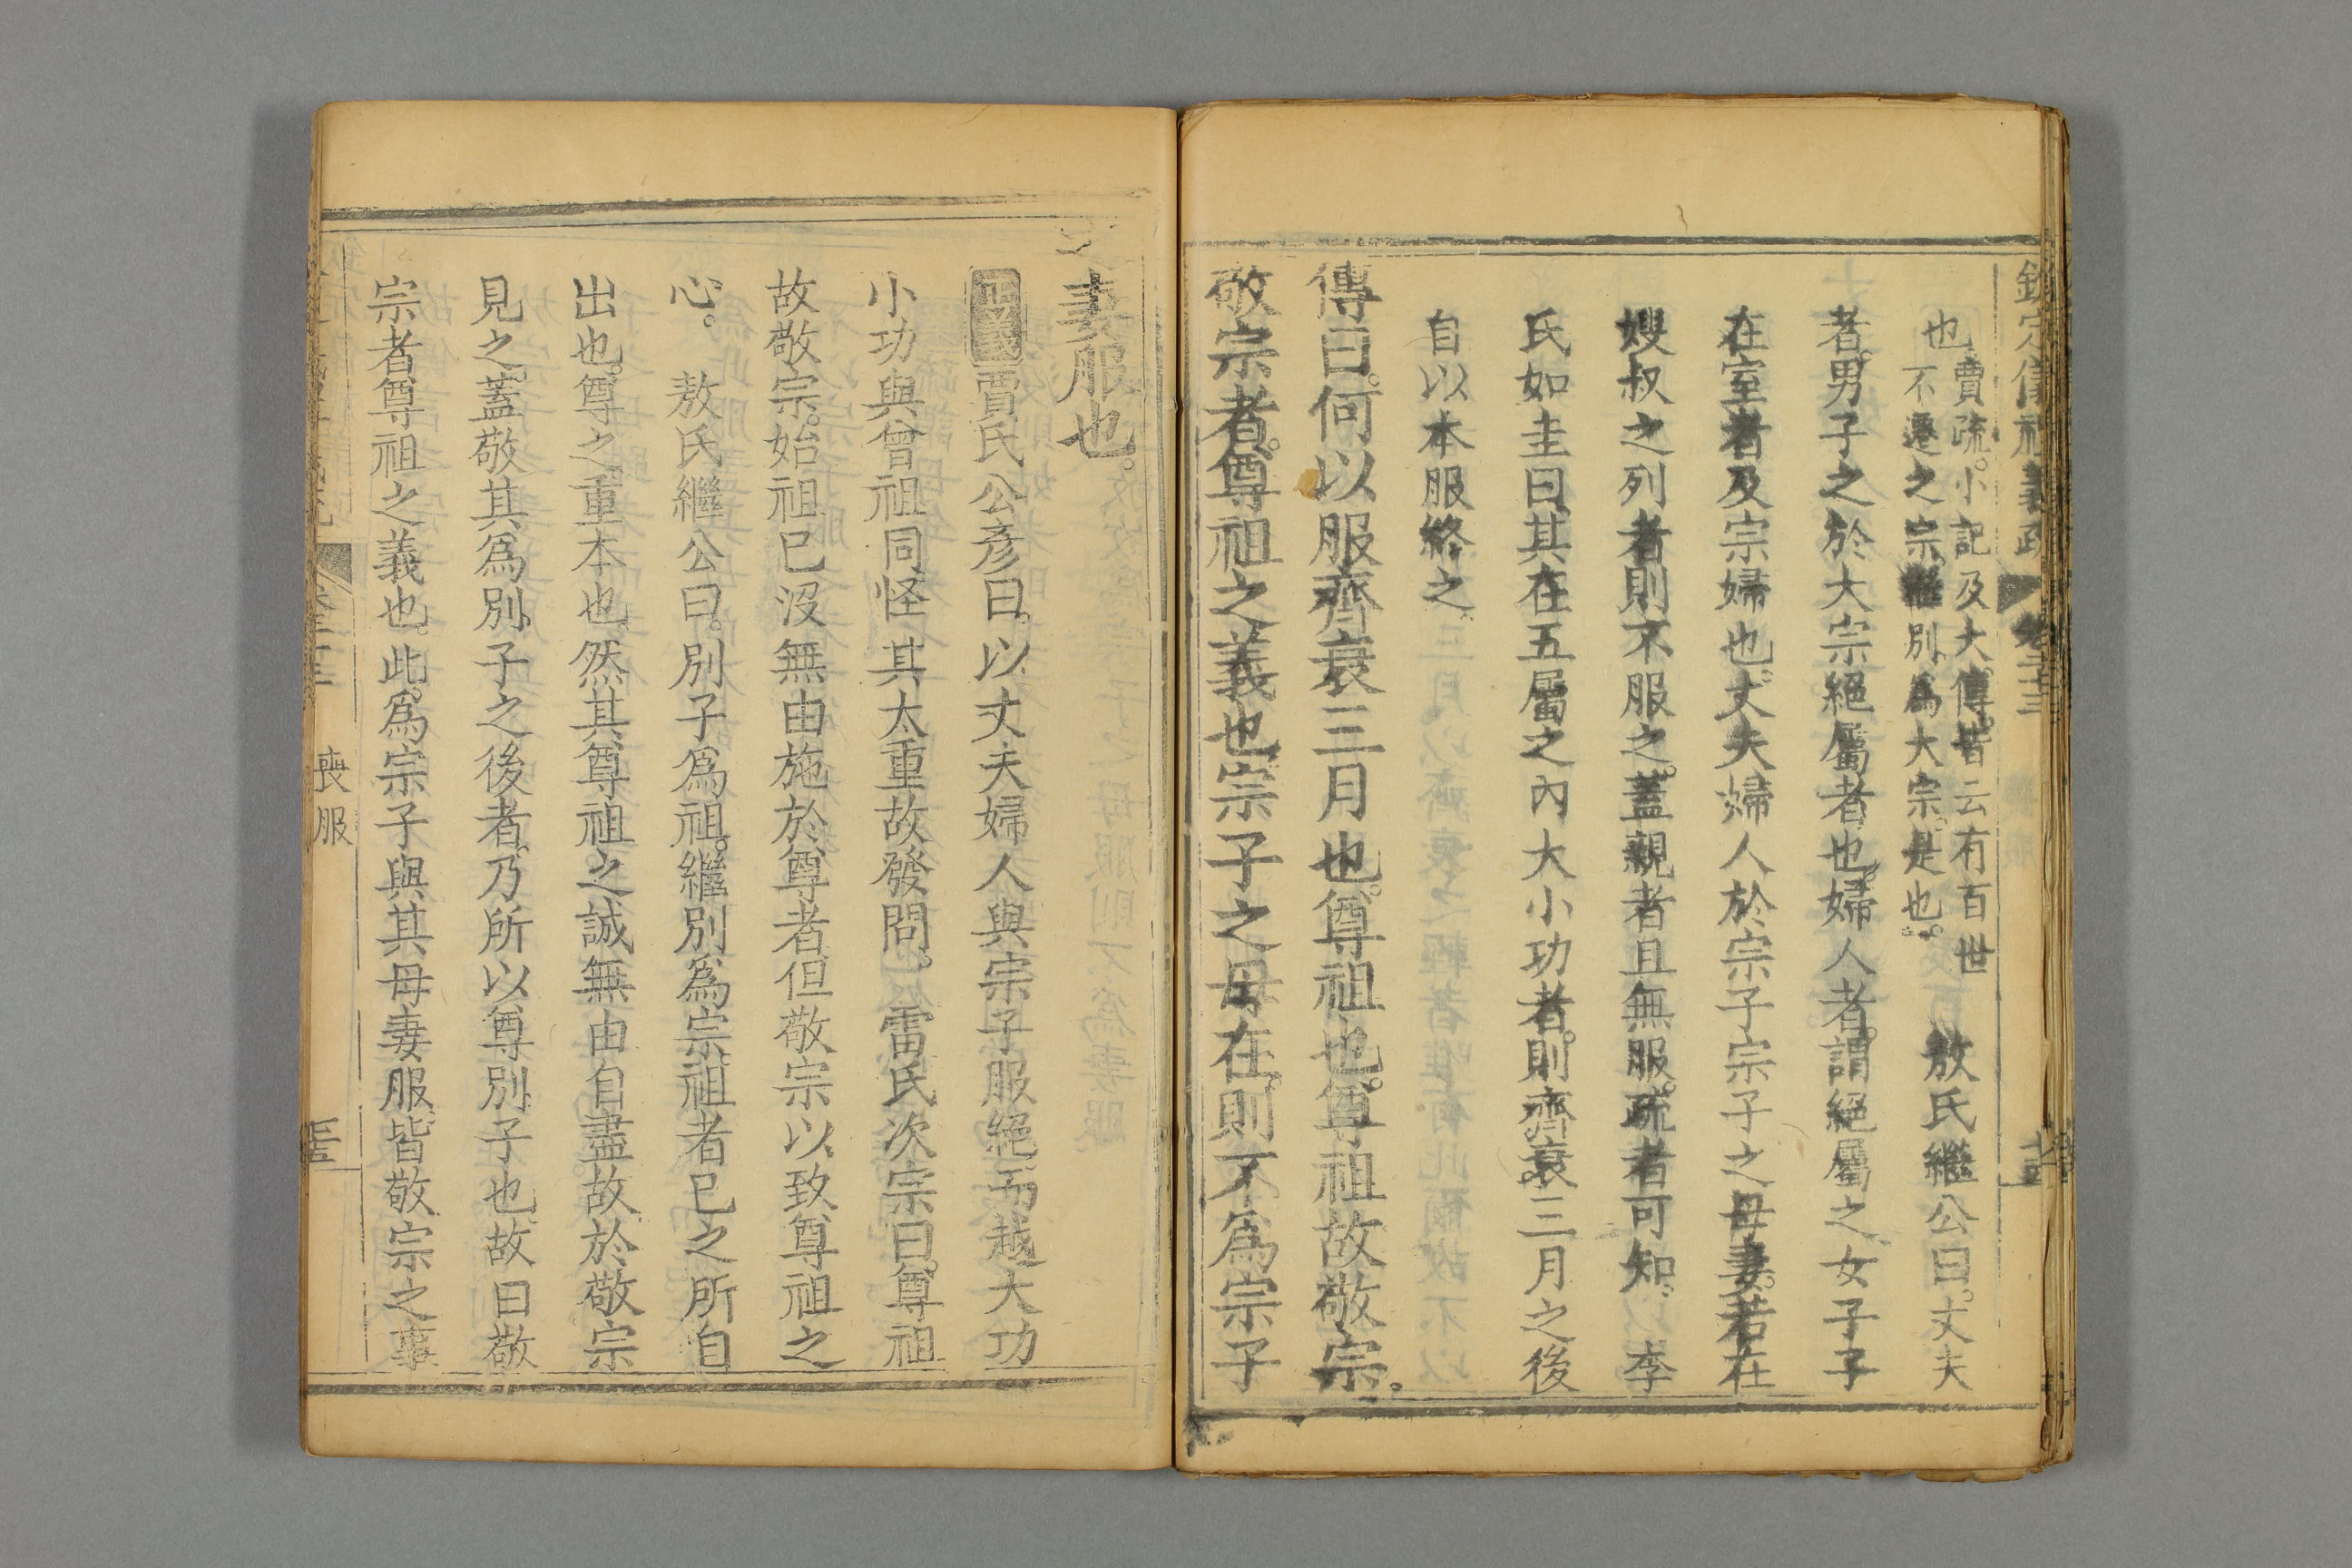 欽定儀禮義疏 卷二十三
也賈疏。小記及大傳。皆云有百世
不遷之宗。繼別爲大宗。是也。 敖氏繼公曰。丈夫
者。男子之於大宗絕屬者也。婦人者。謂絕屬之女子子
在室者及宗婦也。丈夫婦人於宗子宗子之母妻。若在
嫂叔之列者則不服之。蓋親者且無服。疏者可知。 李
氏如圭曰。其在五屬之內大小功者。則齊衰三月之後
自以本服終之。
傳曰。何以服齊衰三月也。尊祖也。尊祖故敬宗。
敬宗者。尊祖之義也。宗子之母在。則不爲宗子
之妻服也。
正義 賈氏公彥曰。以丈夫婦人與宗子服絕而越大功
小功與曾祖同怪其太重故發問。 雷氏次宗曰。尊祖
故敬宗。始祖已沒無由施於尊者。但敬宗以致尊祖之
心。 敖氏繼公曰。別子爲祖。繼別爲宗。祖者已之所自
出也。尊之重本也。然其尊祖之誠無由自盡故於敬宗
見之。蓋敬其爲別子之後者。乃所以尊別子也。故曰敬
宗者尊祖之義也。此爲宗子與其母妻服。皆敬宗之事
喪服